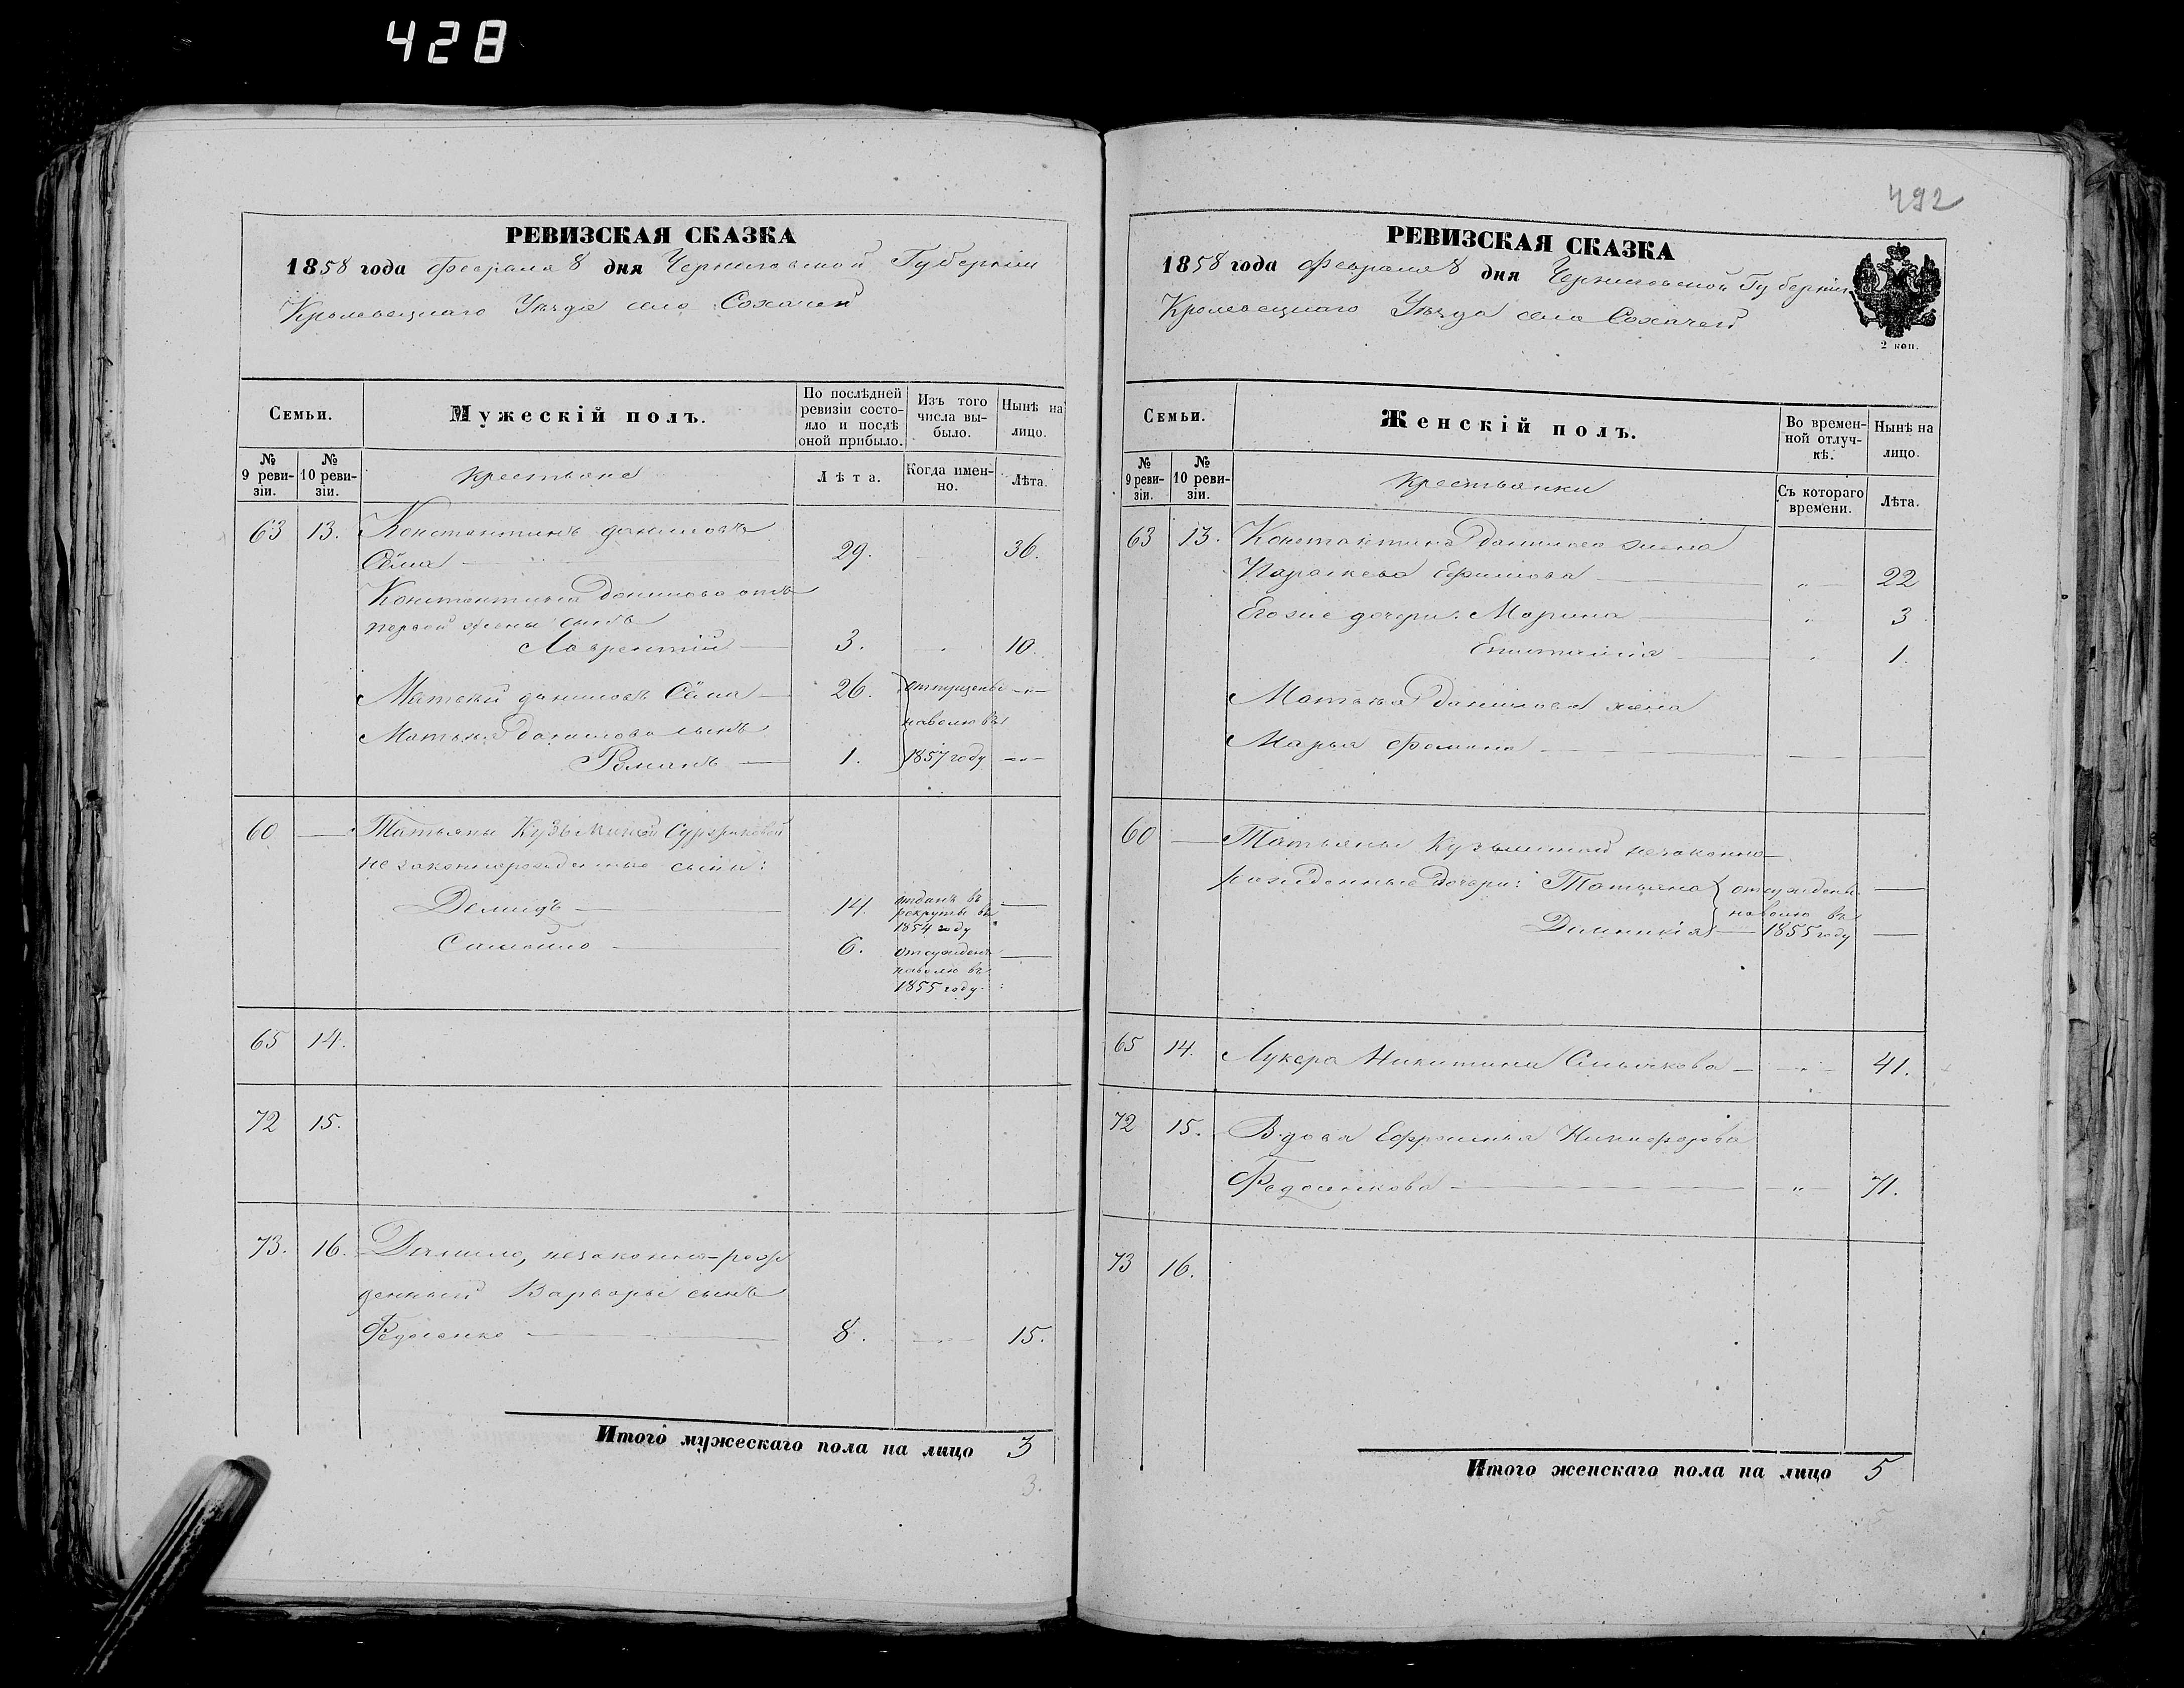 428
РЕВИЗСКАЯ СКАЗКА
1858 года Февраля 8 дня Черниговской Губерніи
Кролевецкаго Уѣзда село Сохачей
Семьи.
Мужескій полъ.
По послѣдней ревизіи состо-
яло и послѣ оной прибыло.
Изъ того числа вы-
было.
Нынѣ на лицо.
№ 9 реви-
зіи.
№ 10 реви-
зіи.
Крестьяне
Лѣта.
Когда имен-
но.
Лѣта.
63 13. Константинъ Даниловъ
Сёма 29. 36.
Константина Данилова отъ
первой жены сынъ
Лаврентій 3. 10.
Матвѣй Даниловъ Сёма 26. отпущены
на волю въ
Матвѣя Данилова сынъ
Романъ 1. 1857 году
60 Татьяны Кузьминой
незаконнорожденные сыны:
Демидъ 14. отданъ въ
рекруты въ
1854 году
Самойло 6. отсужденъ
на волю въ
1855 году.
65 14.
72 15.
73. 16. Данило, незаконно-рож
денный Варвары сынъ
Федосенко 8. 15.
Итого мужескаго пола на лицо 3
3.
492
РЕВИЗСКАЯ СКАЗКА
1858 года Февраля 8 дня Черниговской Губерніи
Кролевецкаго Уѣзда село Сохачей
2 коп.
Семьи.
Женскій полъ.
Во времен-
ной отлуч-
кѣ.
Нынѣ на лицо.
№ 9 реви-
зіи.
№ 10 реви-
зіи.
Крестьянки
Съ котораго времени.
Лѣта.
63 13. Константина Данилова жена
Параскева Ефимова " 22
Егоже дочери: Марина " 3
1.
Матвѣя Данилова жена
Марья Фомина
60 Татьяны Кузьминой незаконно-
рожденные дочери: Татьяна отсуждены
на волю въ
Домникія 1855 году
65 14. Лукера Никитина 41.
72 15. Вдова Ефросинья Никифорова
Федосенкова " 71.
73 16.
Итого женскаго пола на лицо 5
5